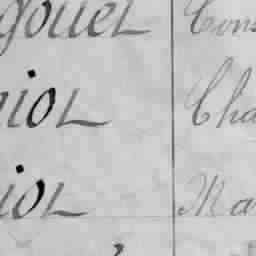 gouel Cons
niol Cha
iol Ma